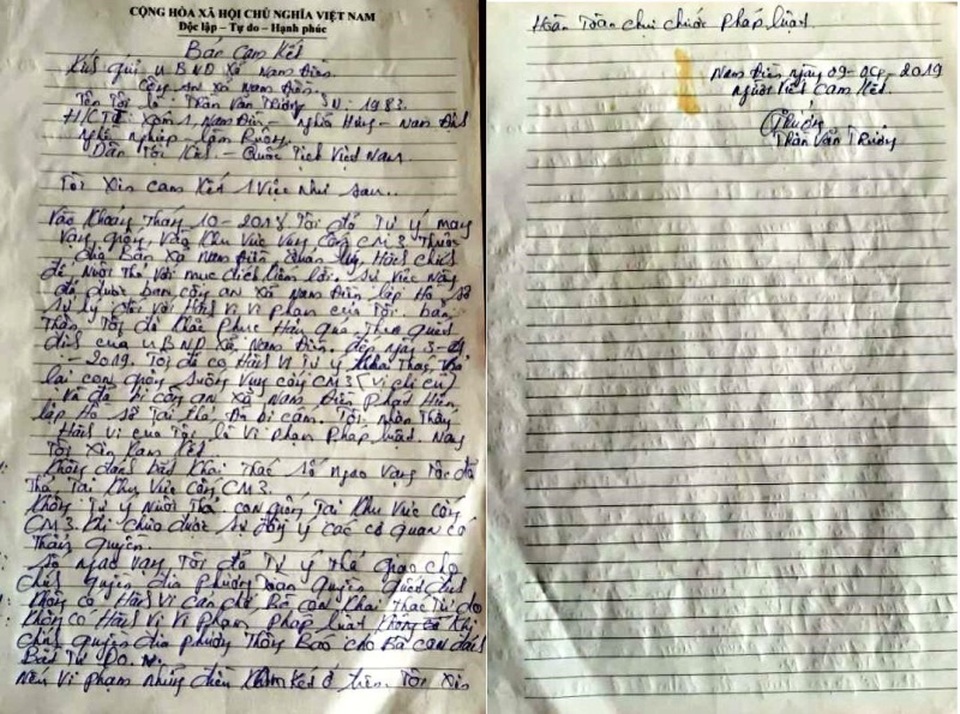 CỘNG HÒA XÃ HỘI CHỦ NGHĨA VIỆT NAM
Độc lập – Tự do – Hạnh phúc
Bản Cam Kết
Kính gửi UBND xã Nam Điền.
Công An xã Nam Điền.
Tên Tôi là: Trần Văn Trưởng SN: 1983.
H/CTT: xóm 1, Nam Điền – Nghĩa Hưng – Nam Định
Nghề nghiệp, làm Ruộng.
Dân Tộc Kinh – Quốc Tịch Việt Nam.
Tôi Xin cam Kết 1 Việc như sau..
Vào Khoảng Tháng 10 – 2018 Tôi đã Tự ý mang
Vạng giống, vào Khu Vực Vung Cống CM3 Thuộc
địa Bàn Xã Nam Điền quản lý,
để, Nuôi Thả với mục đích Kiếm lời. Sự Việc này
đã được ban công an xã Nam Điền lập Hồ sơ
sử lý đối với Hành vi Vi phạm của Tôi. bản
Thân Tôi đã Khắc Phục Hậu quả Theo quyết
định của UBND, Xã, Nam Điền. đến ngày
– 2019. Tôi đã có Hành vi Tự ý
lại con giống xuống Vung cống CM3 (Vị chí cũ)
Và đã bị công an xã Nam Điền Phát Hiện
lập Hồ sơ Tôi nhận Thấy
Hành vi của Tôi là Vi phạm Pháp luật. Nay
Tôi Xin Kam Kết.
Không đánh bắt Khai Thác Số ngao vạng Tôi đã
Thả, Tại Khu Vực Cống CM3.
Không Tự ý Nuôi Thả con giống Tại Khu Vực cống
CM3. Khi chưa được sự đồng ý các cơ quan có
Thẩm quyền.
Số ngao vạng Tôi đã Tự ý Thả giao cho
chính quyền địa phương Toàn quyền quyết định
Không có Hành vi cản chở Bà con Khai Thác Tự do
Không có Hành vi Vi Phạm Pháp luật Khi
chính quyền địa phương Thông Báo cho Bà con đánh
Bắt Tự Do.
Nếu Vi phạm những điều Kam Kết ở trên. Tôi Xin
Hoàn Toàn chịu trước Pháp luật
Nam Điền ngày 09-04-2019
Người Viết Cam Kết.
Trưởng
Trần Văn Trưởng